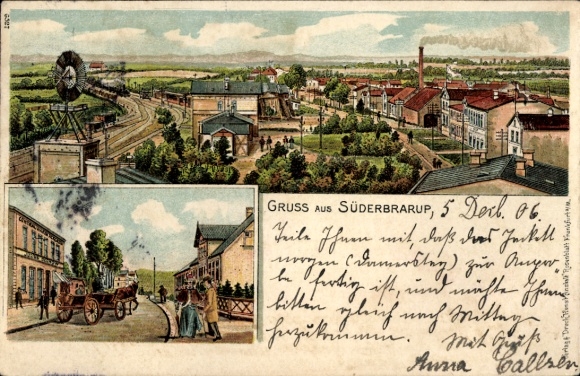 GRUSS AUS SÜDERBRARUP, 5 Dezb. 06.
Teile Ihnen mit, daß das Jackett
morgen (Donnerstag) zur Anpro-
be fertig ist, und möchte Ihnen
bitten gleich nach Mittag
herzukommen. Mit Gruß
Anna Callsen